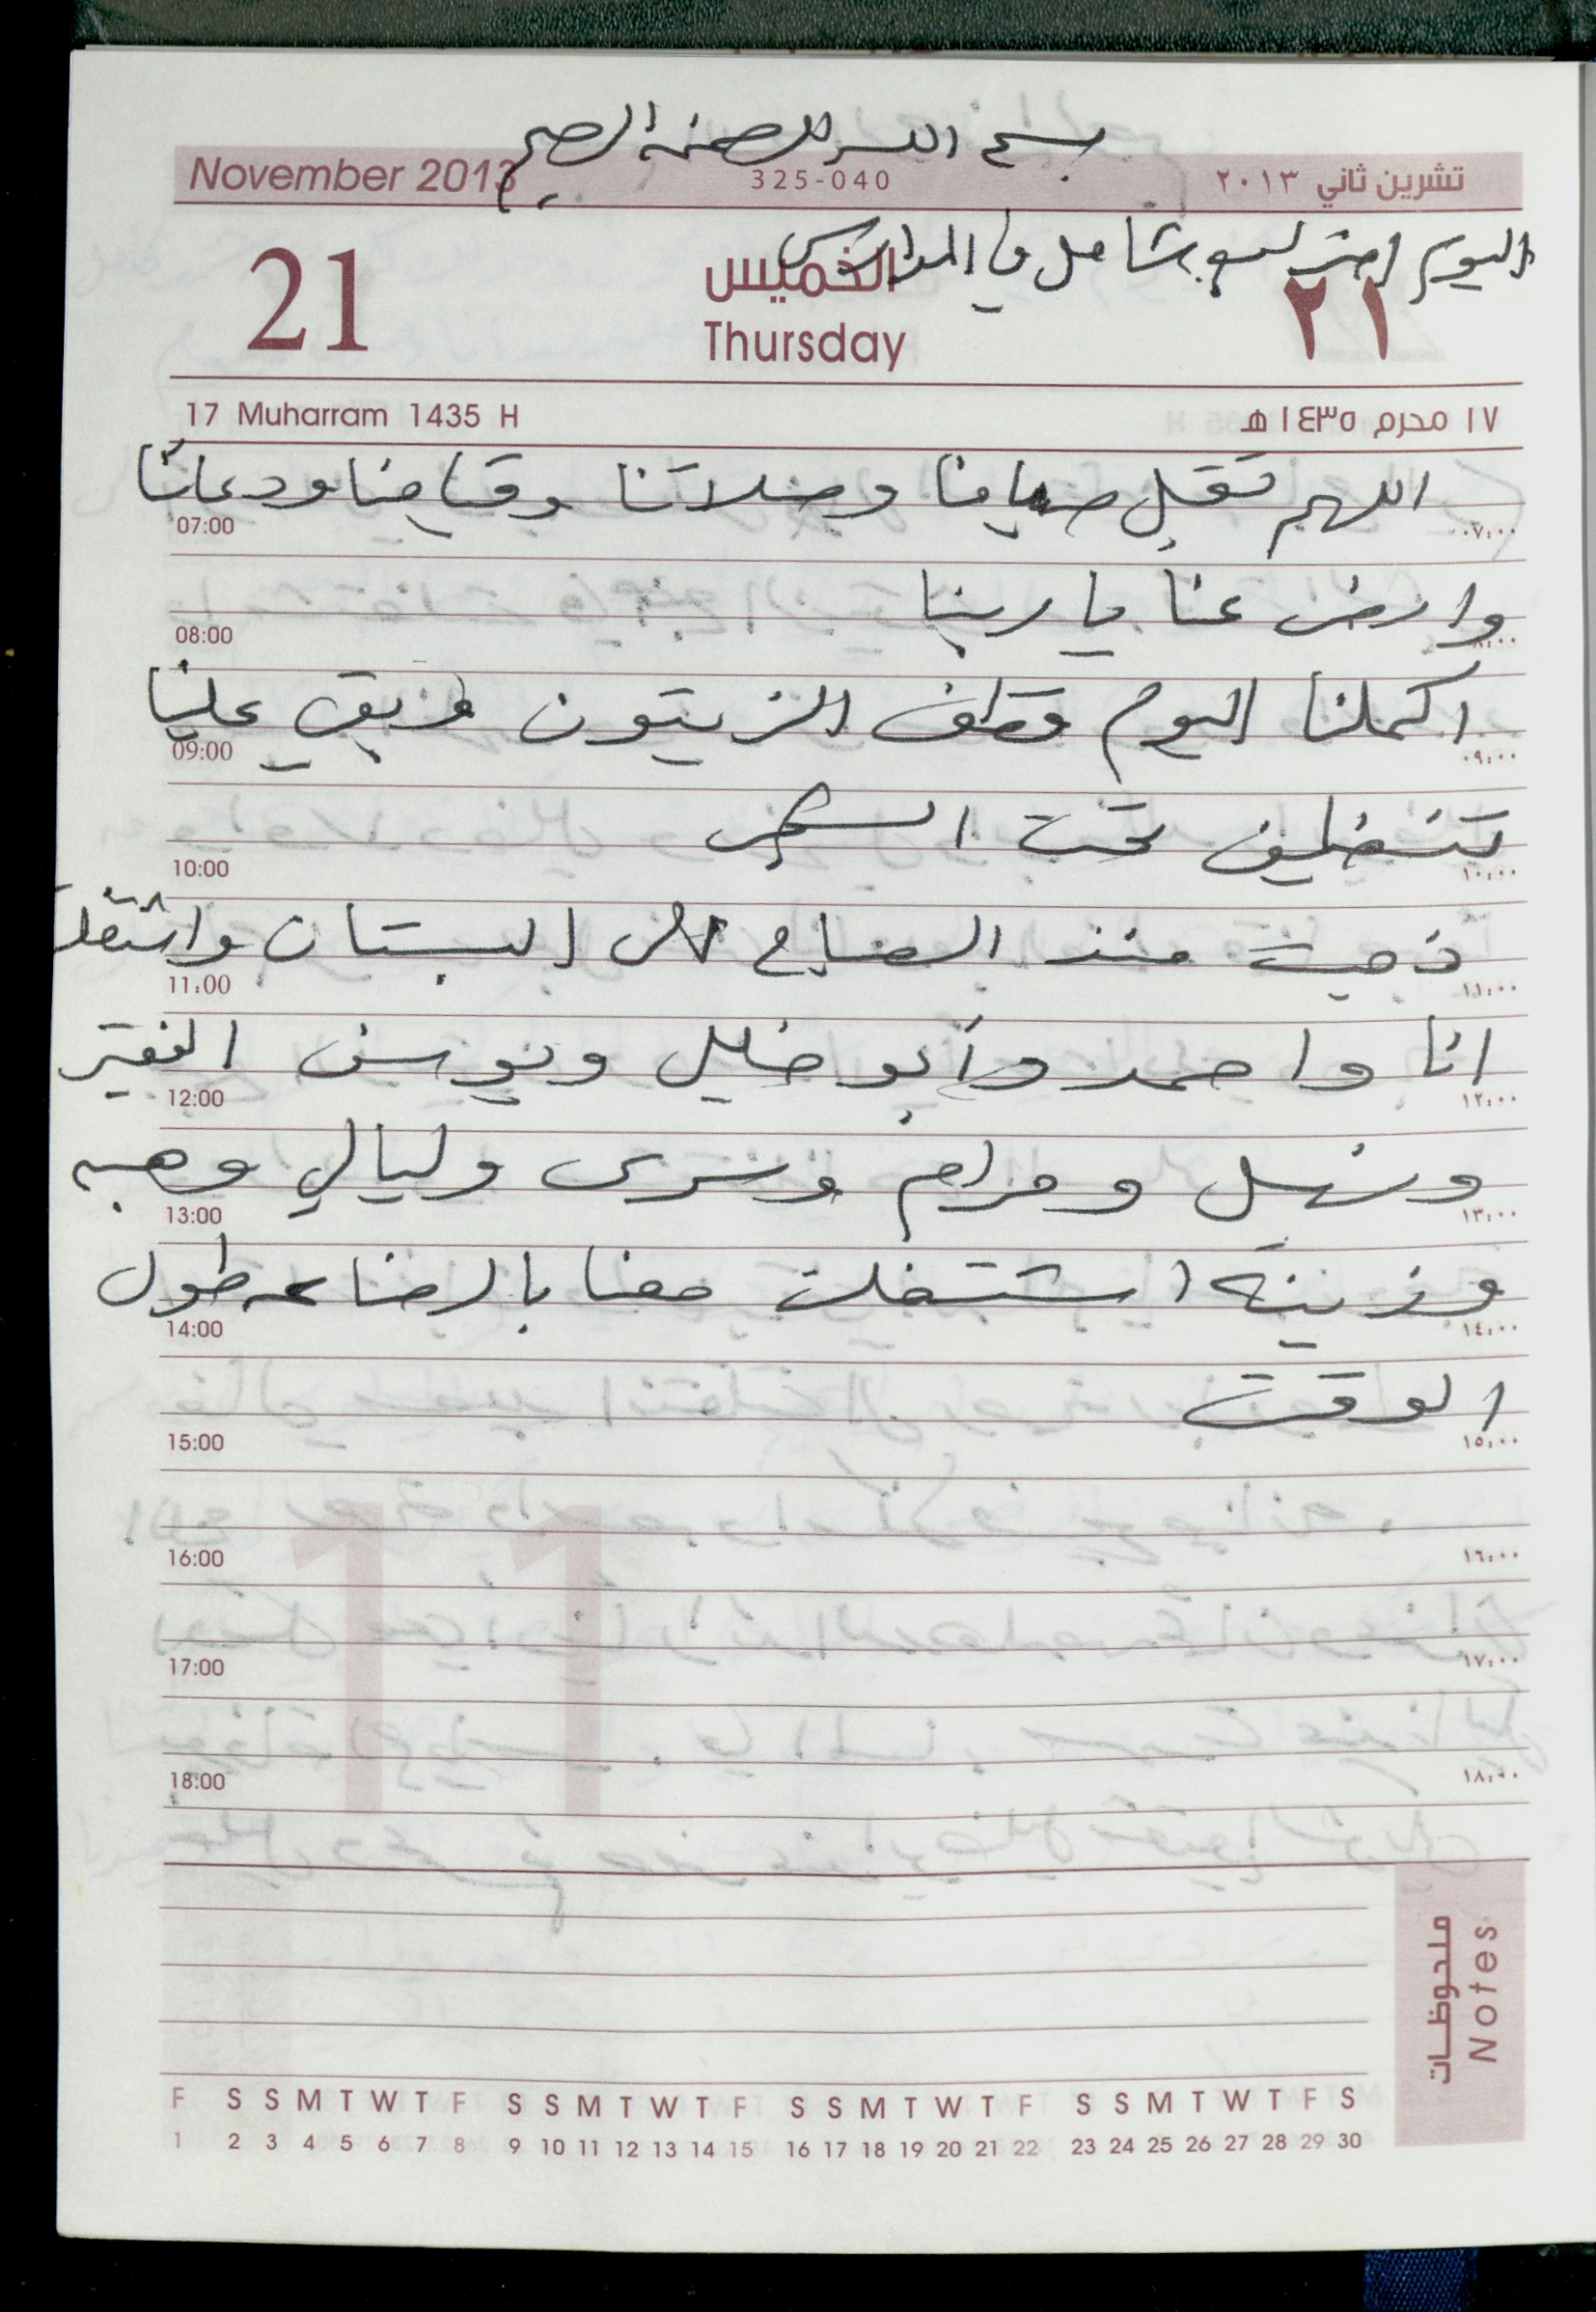 بسم الله الرحمن الرحيم
November 2013 325-040 تشرين ثاني ٢٠١٣
اليوم اضراب شامل في المدارس
21 الخميس ٢١
Thursday
17 Muharram 1435 H ١٧ محرم ١٤٣٥ هـ
اللهم تقبل صيامنا وصلاتنا وقيامنا ودعائنا
07:00 ٠٧:٠٠
وارض عنا يا ربنا
08:00 ٠٨:٠٠
اكملنا اليوم قطف الزيتون وبقي علينا
09:00 ٠٩:٠٠
تنضيف تحت الشجر
10:00 ١٠:٠٠
ذهبت منذ الصباح الى البستان واشتغلت
11:00 ١١:٠٠
انا واحمد وأبو خليل ويوسف الفقير
12:00 ١٢:٠٠
ومرام ويسرى وليالي وهبه
13:00 ١٣:٠٠
وزينة اشتغلت معنا بالرضاعه طول
14:00 ١٤:٠٠
الوقت
15:00 ١٥:٠٠
16:00 ١٦:٠٠
17:00 ١٧:٠٠
18:00 ١٨:٠٠
ملحوظات
Notes
F S S M T W T F S S M T W T F S S M T W T F S S M T W T F S
1 2 3 4 5 6 7 8 9 10 11 12 13 14 15 16 17 18 19 20 21 22 23 24 25 26 27 28 29 30